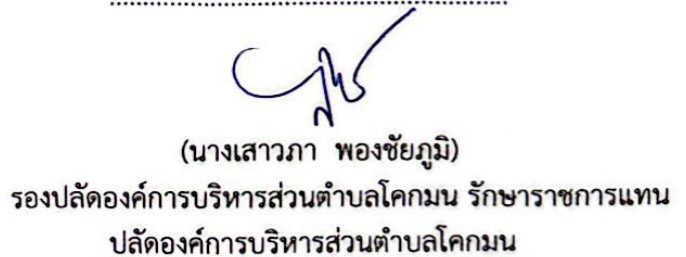 (นางเสาวภา พองชัยภูมิ)
รองปลัดองค์การบริหารส่วนตำบลโคกมน รักษาราชการแทน
ปลัดองค์การบริหารส่วนตำบลโคกมน